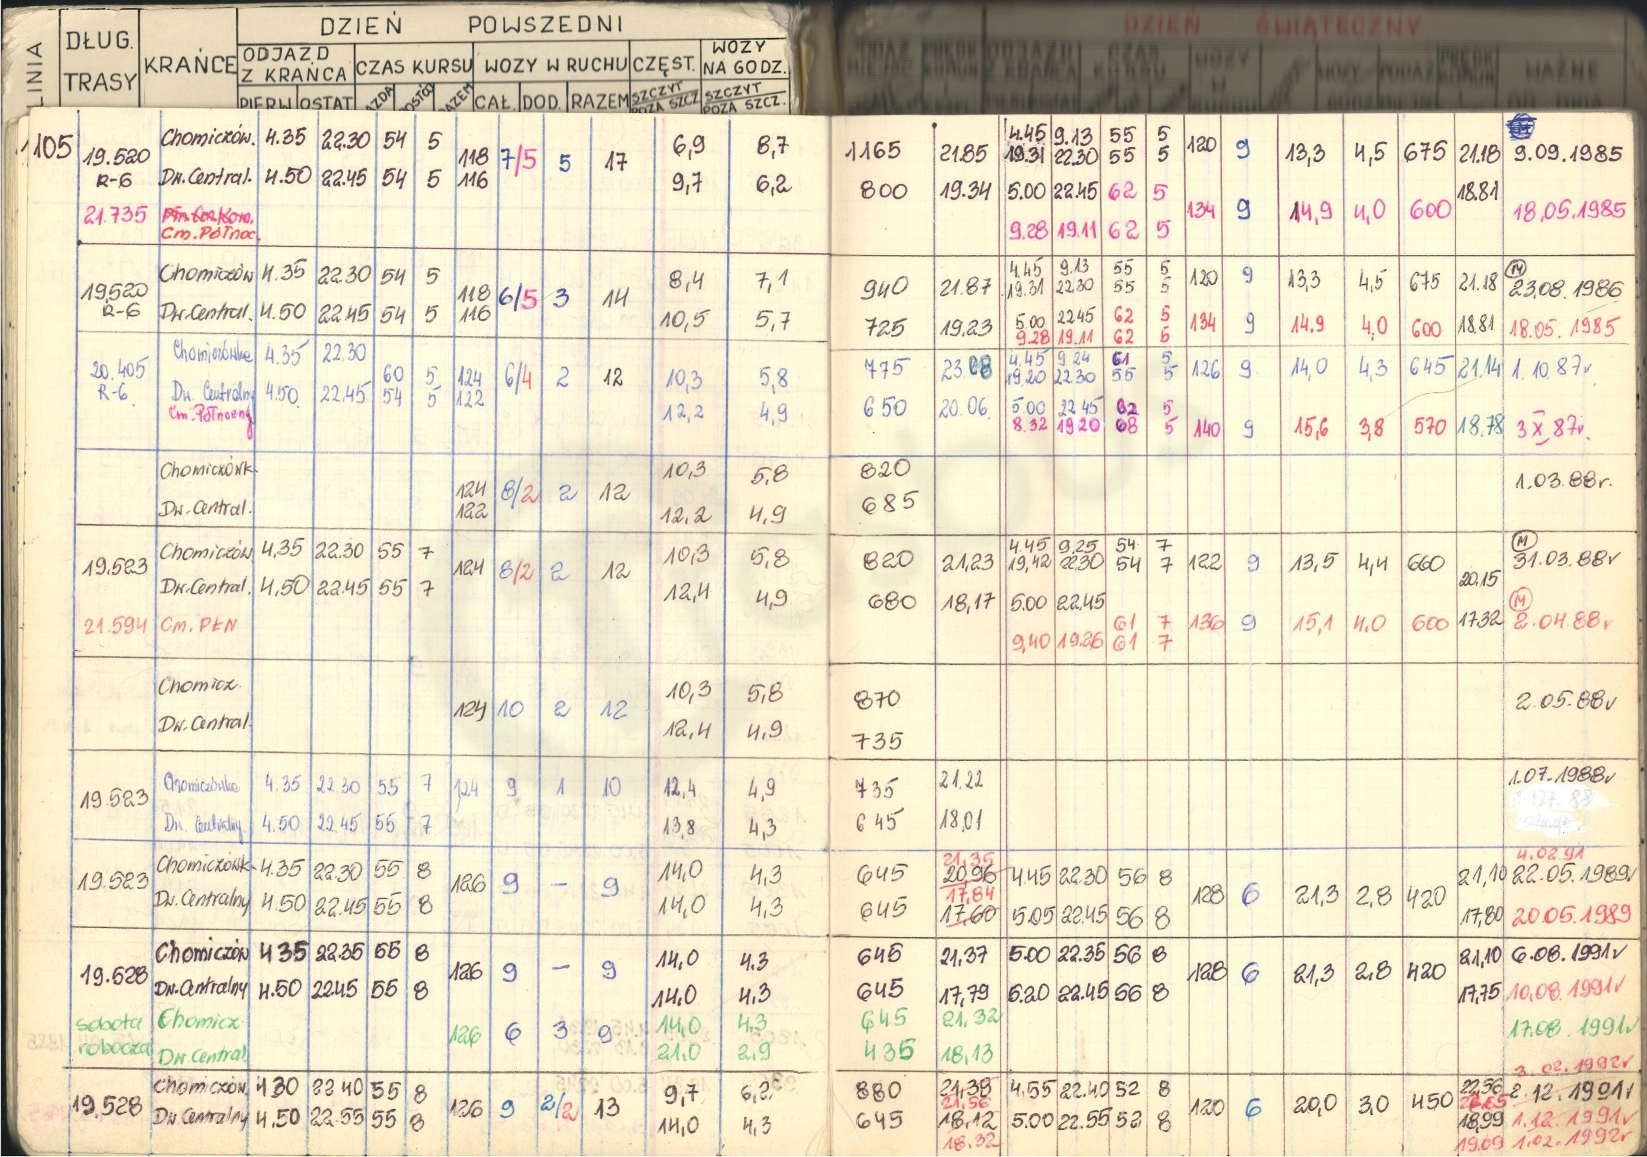 LINIA
DŁUG. TRASY
KRAŃCE
DZIEŃ POWSZEDNI
ODJAZD Z KRAŃCA
CZAS KURSU
WOZY W RUCHU
CZĘST.
WOZY NA GODZ.
PIERW OSTAT.
CAŁ. DOD. RAZEM
SZCZYT POZA SZCZ.
SZCZYT POZA SZCZ.
DZIEŃ ŚWIĄTECZNY
105 19.520 Chomiczów. 4.35 22.30 54 5 118 7/5 5 17 6,9 8,7 1165 21.85 4.45 9.13 55 5 120 9 13,3 4,5 675 21.18 9.09.1985
19.31 22.30 55 5
R-6 Dw.Central. 4.50 22.45 54 5 116 9,7 6,2 800 19.34 5.00 22.45 62 5 18.81
21.735 134 9 14,9 4,0 600 18.05.1985
Cm.Północ. 9.28 19.11 62 5
19.520 Chomiczów 4.35 22.30 54 5 118 6/5 3 14 8,4 7,1 940 21.87 4.45 9.13 55 5 120 9 13,3 4,5 675 21.18 M 23.08.1986
19.31 22.30 55 5
R-6 Dw.Central. 4.50 22.45 54 5 116 10,5 5,7 725 19.23 5.00 22.45 62 5 134 9 14.9 4,0 600 18,81 18.05.1985
9.28 19.11 62 5
20.405 Chomiczówka 4.35 22.30 60 5 124 6/4 2 12 10,3 5,8 775 23.08 4.45 9.24 61 5 126 9 14,0 4,3 645 21.14 1.10.87r
19.20 22.30 55 5
R-6 Dw. Centralny 4.50 22.45 54 5 122 12,2 4,9 650 20.06. 5.00 22.45 62 5
Cm.Północny 8.32 19 20 68 5 140 9 15,6 3,8 570 18.78 3 X 87r.
Chomiczówk. 124 8/2 2 12 10,3 5,8 820 1.03.88r.
Dw.Central. 122 12,2 4,9 685
19.523 Chomiczów 4,35 22.30 55 7 124 8/2 2 12 10,3 5,8 820 21,23 4.45 9.25 54 7 122 9 13,5 4,4 660 20.15 M 31.03.88r
19,42 22.30 54 7
Dw.Central. 4,50 22.45 55 7 12,4 4,9 680 18,17 5.00 22.45 M
21.594 Cm.PŁN 61 7 136 9 15,1 4.0 600 17.32 2.04.88r
9,40 19.26 61 7
Chomicz. 124 10 2 12 10,3 5,8 870 2.05.88r
Dw.Central. 12,4 4,9 735
19.523 Chomiczówka 4.35 22.30 55 7 124 9 1 10 12,4 4,9 735 21.22 1.07.1988r
Dw. Centralny 4.50 22.45 55 7 13,8 4,3 645 18,01
21,35 4.02.91
19.523 Chomiczówk. 4.35 22.30 55 8 126 9 - 9 14,0 4,3 645 20,96 4.45 22.30 56 8 128 6 21,3 2,8 420 21,10 22.05.1989r
17,84
Dw.Centralny 4.50 22.45 55 8 14,0 4,3 645 17,60 5.05 22.45 56 8 17,80 20.05.1989
19.528 Chomiczów 4 35 22.35 55 8 126 9 - 9 14,0 4.3 645 21,37 5.00 22.35 56 8 128 6 21,3 2.8 420 21,10 6.08.1991r
Dw.Centralny 4.50 22.45 55 8 14,0 4,3 645 17,79 5.20 22.45 56 8 17,75 10.08.1991r
sobota Chomicz. 126 6 3 9 14,0 4,3 645 21.32 17.08.1991r
robocza Dw.Central. 21,0 2,9 435 18,13
3.02.1992r
19.528 Chomiczów. 4 30 22 40 55 8 126 9 2/2 13 9,7 6,2 880 21,38 4.55 22.40 52 8 120 6 20,0 3,0 450 22,56 2.12.1991r
21,56
Dw.Centralny 4.50 22.55 55 8 14,0 4,3 645 18,12 5.00 22.55 52 8 18,99 1.12.1991r
18.32 19.09 1.02.1992r